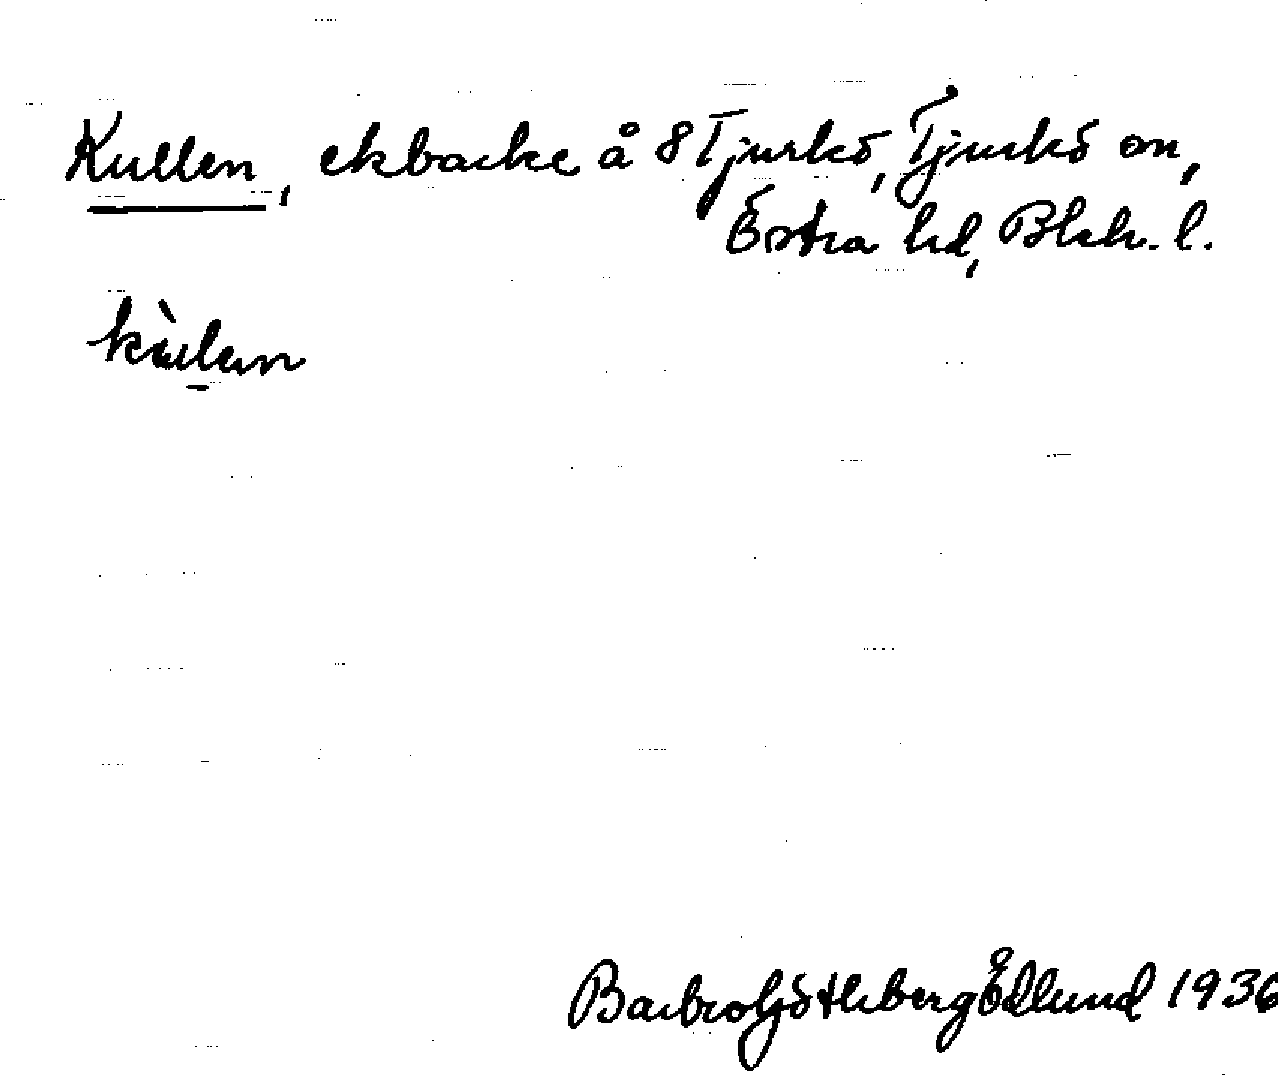 Kullen, ekbacke å 8 Tjurkö, Tjurkö sn,
Östra hd, Blek. l.
kùlen
Barbro Götlberg Ödlund 1936